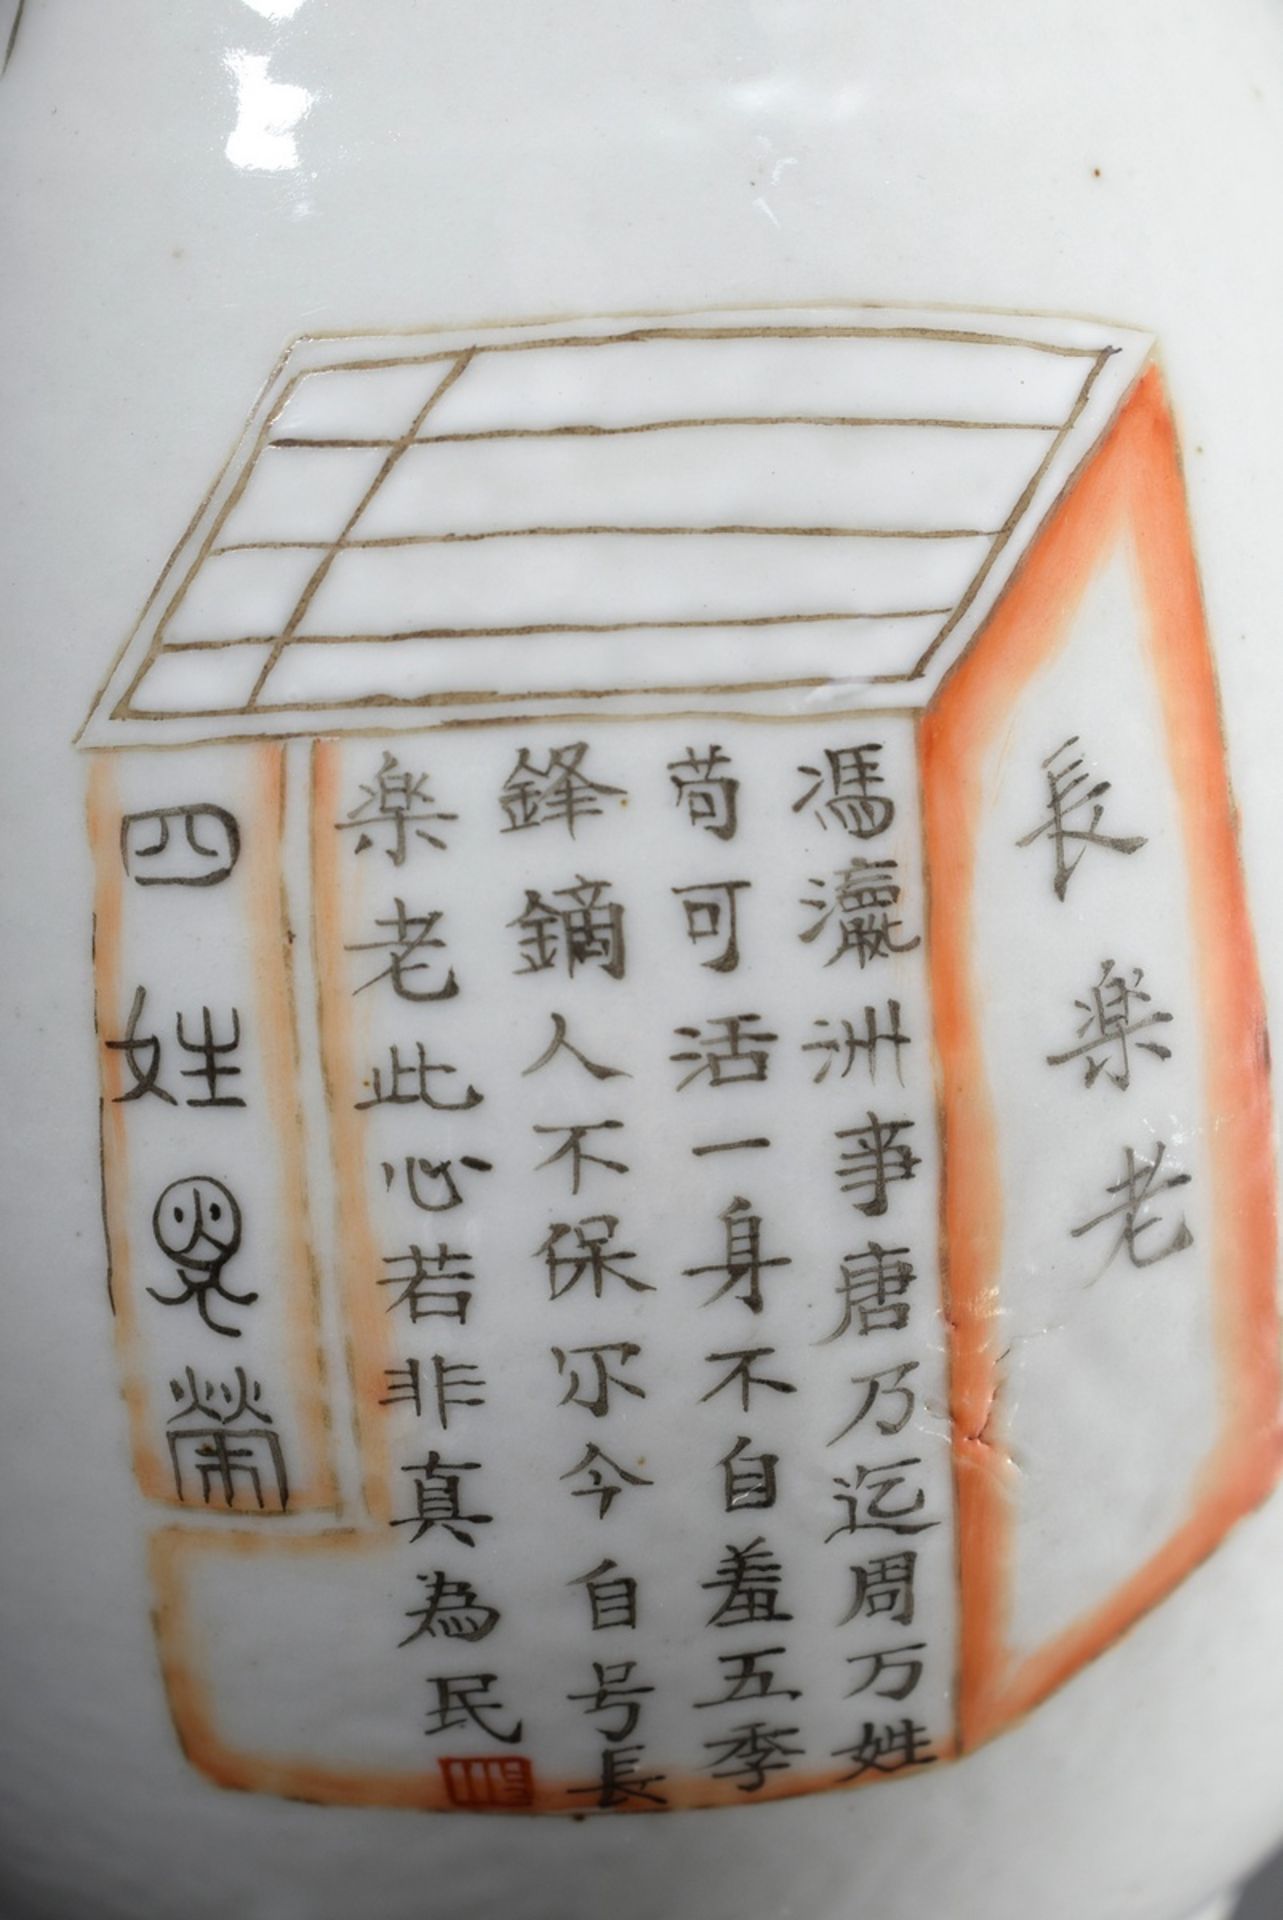 長楽老
馮瀛洲事唐乃迄周万姓
苟可活一身不自羞五季
鋒鏑人不保尓今自号長
楽老此心若非真為民
四姓恩榮